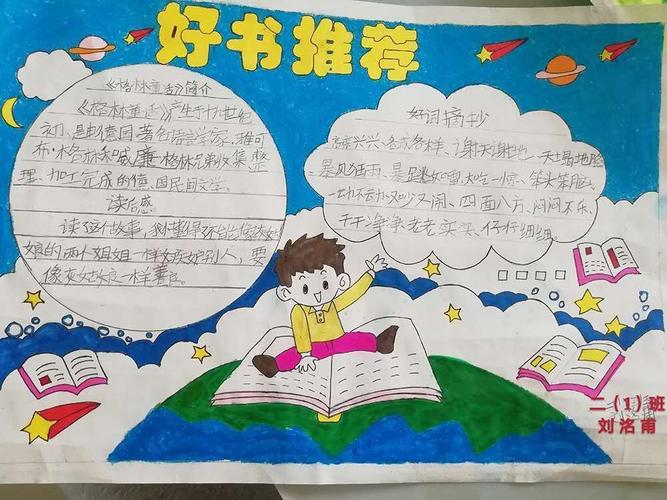 好书推荐
《格林童话》简介
《格林童话》产生于十九世纪
初、是由德国著名语言学家，雅可
布·格林和威廉·格林兄弟收集、整
理、加工完成的德、国民间文学。
读后感
读这个故事，我懂得了不能像灰姑
娘的两个姐姐一样妒忌别人，要
像灰姑娘一样善良。
好词摘抄
高高兴兴、各式各样、谢天谢地、一天
暴风狂雨、大吃一惊、笨头笨脑、
一动不动、又吵又闹、四面八方、闷闷不乐、
干干净净、老老实实、仔仔细细
二（1）班
刘洺甫